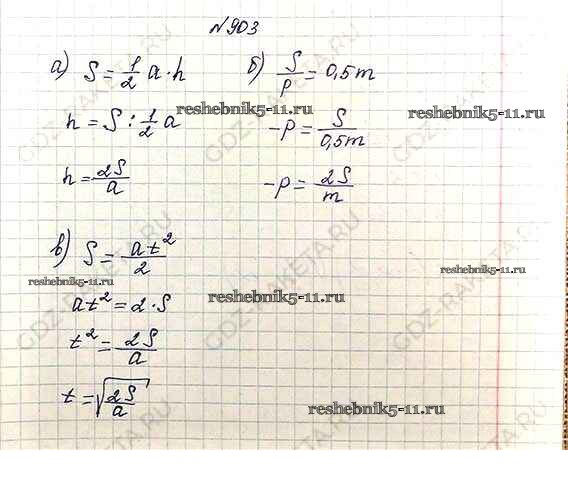 №903
а) S = 1/2 a · h
h = S : 1/2 a
h = 2S/a
б) S/p = 0,5m
-p = S/0,5m
-p = 2S/m
в) S = at²/2
at² = 2·S
t² = 2S/a
t = √(2S/a)
reshebnik5-11.ru
reshebnik5-11.ru
reshebnik5-11.ru
reshebnik5-11.ru
reshebnik5-11.ru
reshebnik5-11.ru
GDZ-RAKETA.RU
GDZ-RAKETA.RU
GDZ-RAKETA.RU
GDZ-RAKETA.RU
GDZ-RAKETA.RU
GDZ-RAKETA.RU